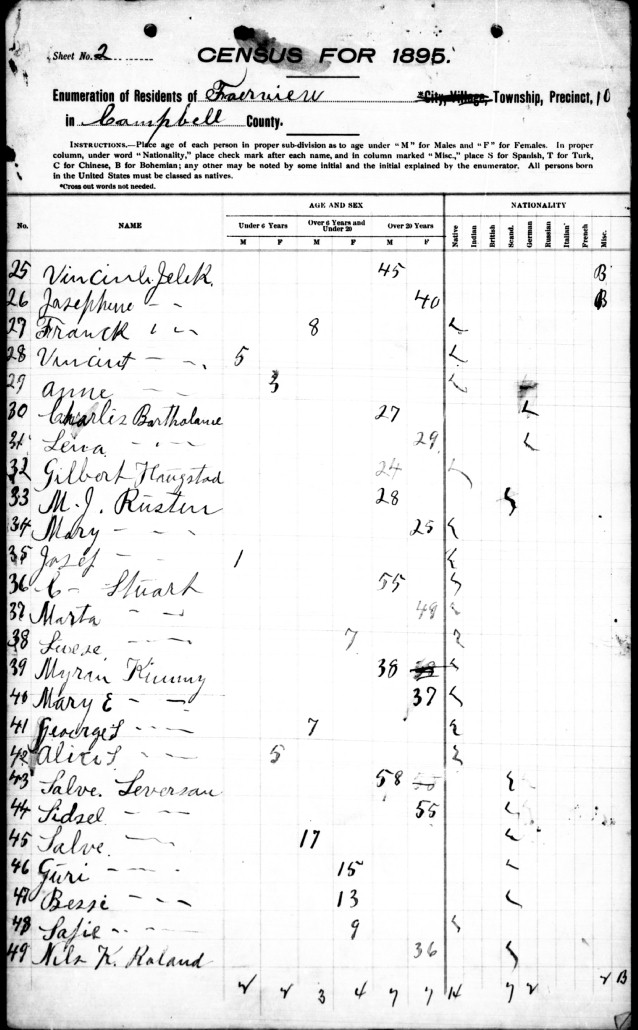 Sheet No. 2
CENSUS FOR 1895.
Enumeration of Residents of Faerview *City, Village, Township, Precinct, 10
in Campbell County.
INSTRUCTIONS.—Place age of each person in proper sub-division as to age under "M" for Males and "F" for Females. In proper
column, under word "Nationality," place check mark after each name, and in column marked "Misc.," place S for Spanish, T for Turk,
C for Chinese, B for Bohemian; any other may be noted by some initial and the initial explained by the enumerator. All persons born
in the United States must be classed as natives.
*Cross out words not needed.
AGE AND SEX NATIONALITY
No. NAME Under 6 Years Over 6 Years and Under 20 Over 20 Years Native Indian British Scand. German Russian Italian French Misc.
M F M F M F
25 Jelek 45 B
26 Josephine - - 40 B
27 Franck - - 8
28 Vincint - - 5
29 Anne - - 3
30 Charlis Bartholame 27
31 Lena - - 29
32 Gilbert Haugstad 24
33 M. J. Rusten 28
34 Mary - - - 25
35 Josef - - 1
36 C - Stuart 55
37 Marta - - 49
38 - - 7
39 Myran Kimmy 38
40 Mary E - - 37
41 George S - - - 7
42 Alice S - - 5
43 Salve. Leversan 58
44 Sidsel - - - 55
45 Salve 17
46 Guri - - - 15
47 Bessi - - - 13
48 Safie - - - 9
49 Nils K. Roland 36
2 2 3 4 7 7 14 7 2 2 B